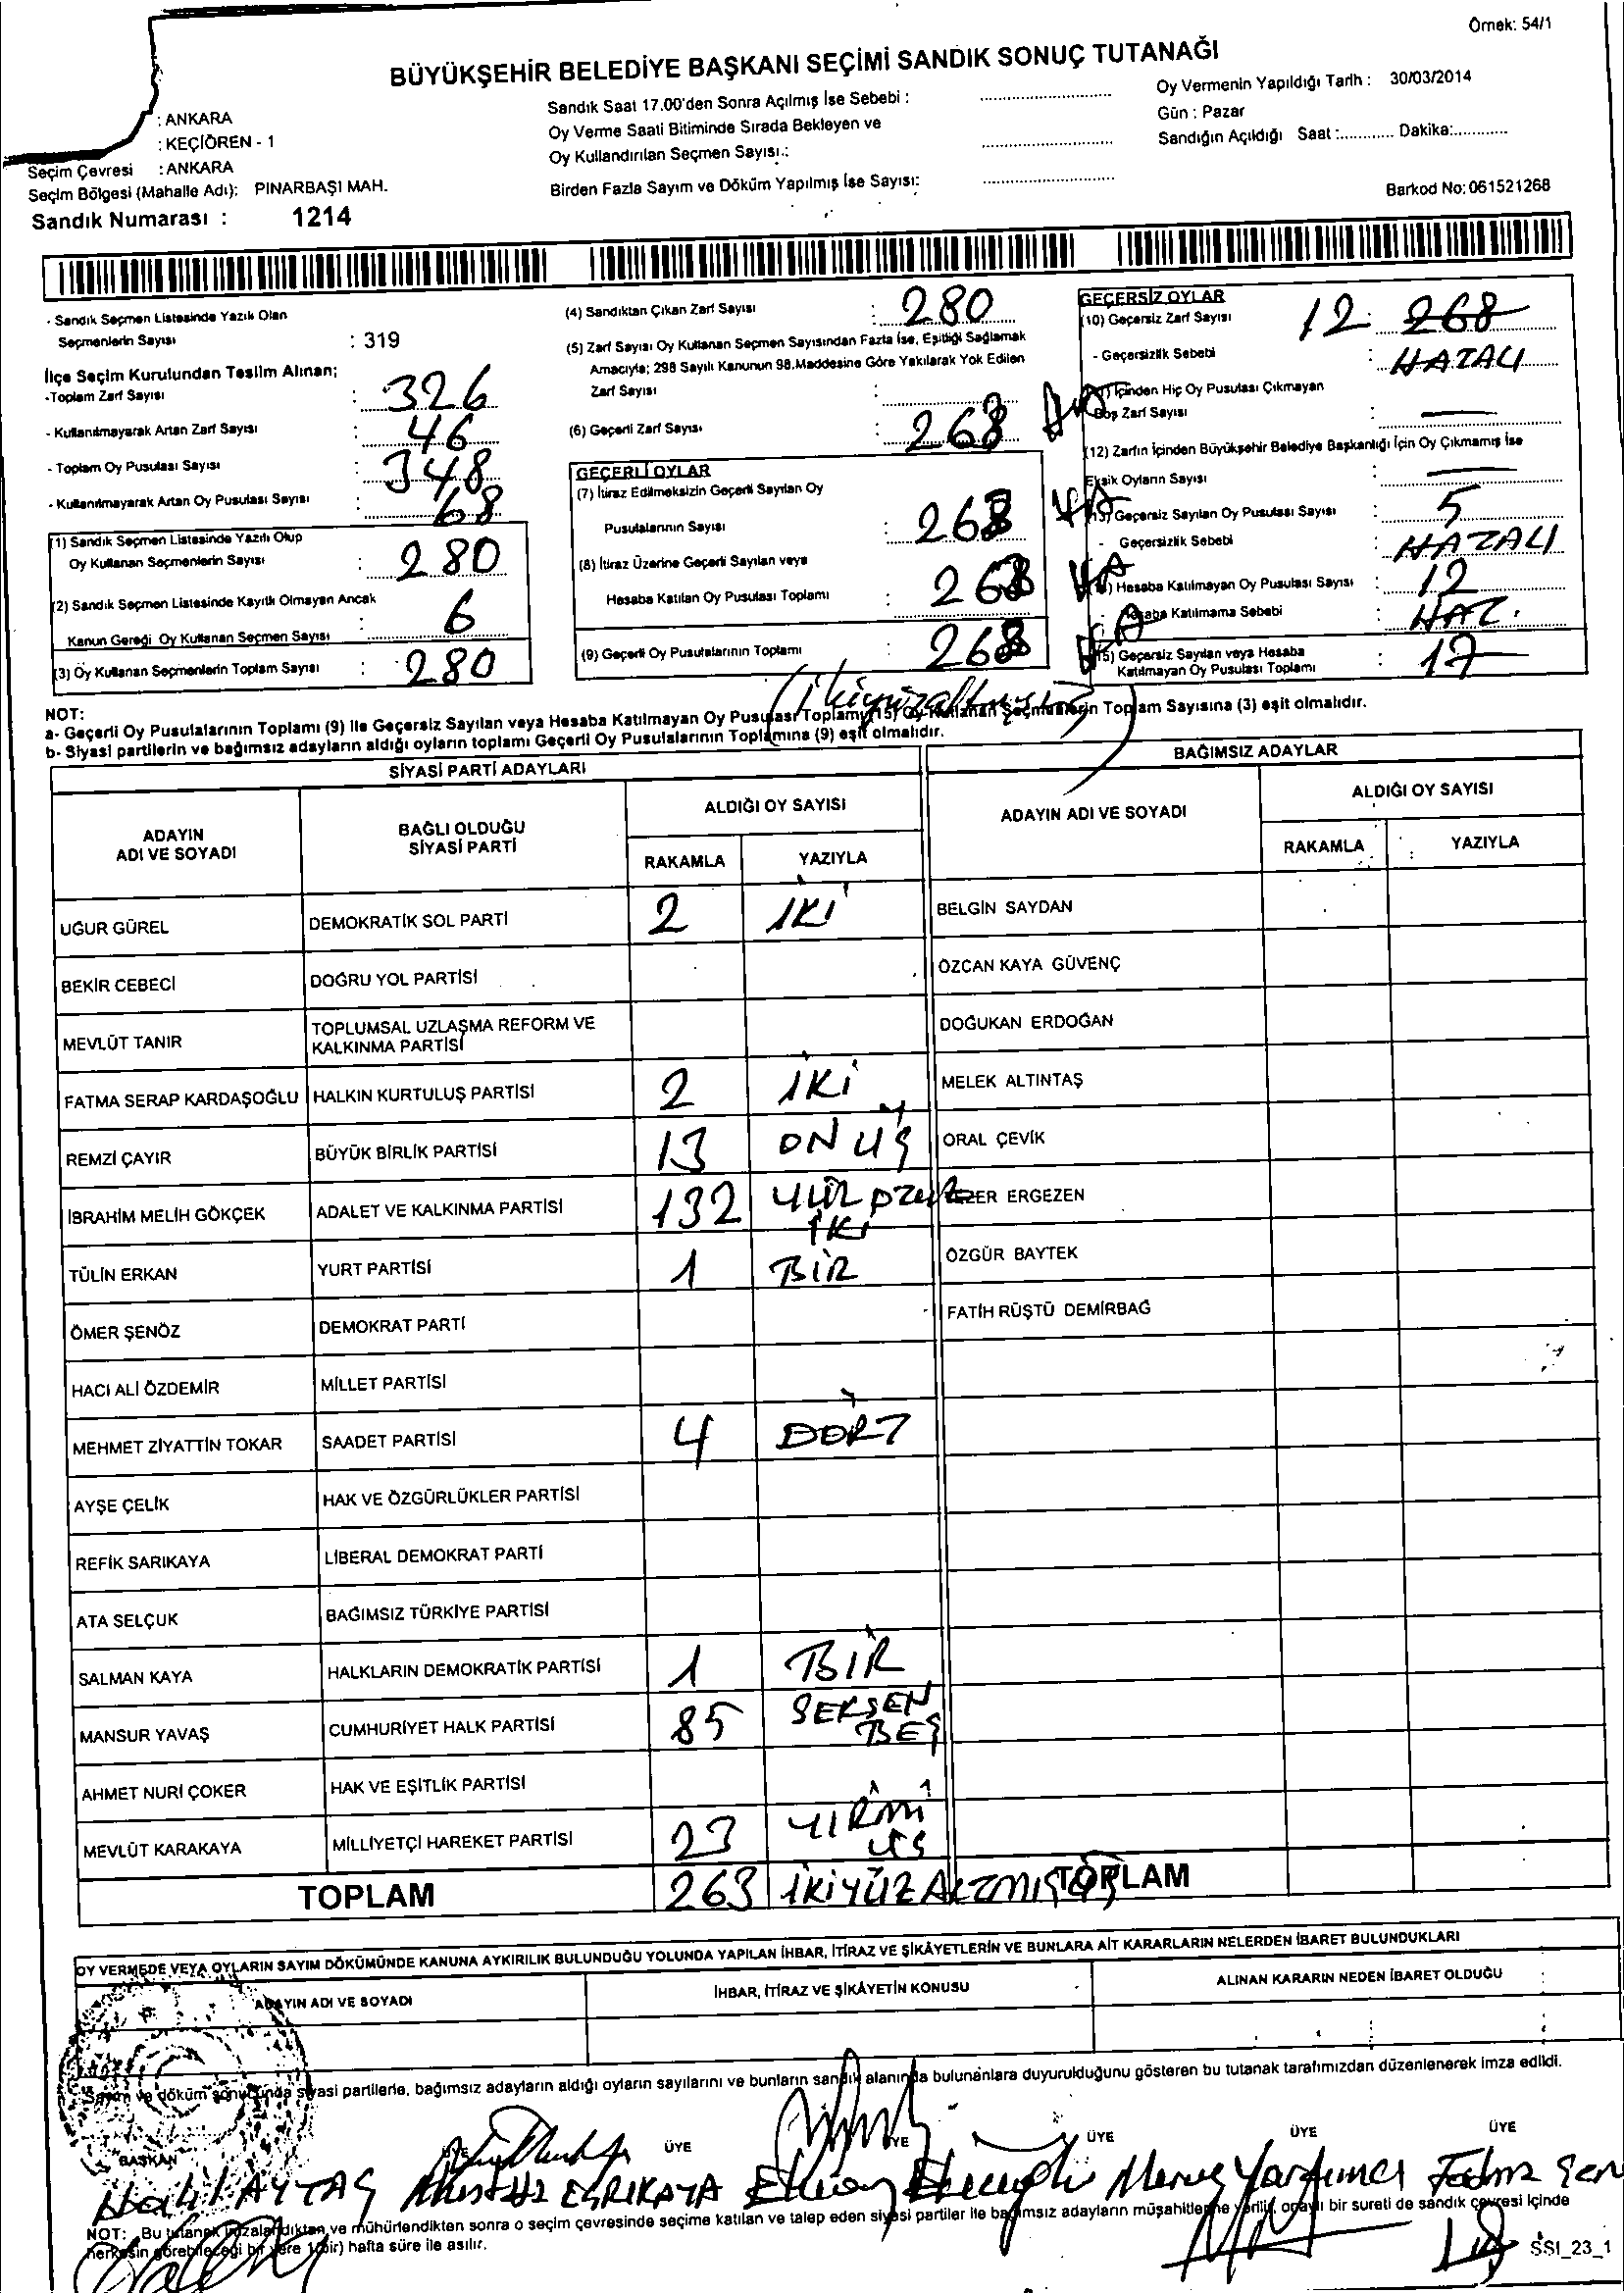 Örnek: 54/1
BÜYÜKŞEHİR BELEDİYE BAŞKANI SEÇİMİ SANDIK SONUÇ TUTANAĞI
: ANKARA
: KEÇİÖREN - 1
Seçim Çevresi : ANKARA
Seçim Bölgesi (Mahalle Adı): PINARBAŞI MAH.
Sandık Numarası : 1214
Sandık Saat 17.00'den Sonra Açılmış İse Sebebi :
Oy Verme Saati Bitiminde Sırada Bekleyen ve
Oy Kullandırılan Seçmen Sayısı.:
Birden Fazla Sayım ve Döküm Yapılmış İse Sayısı:
Oy Vermenin Yapıldığı Tarih : 30/03/2014
Gün : Pazar
Sandığın Açıldığı Saat :............ Dakika:...........
Barkod No: 061521268
- Sandık Seçmen Listesinde Yazılı Olan
Seçmenlerin Sayısı : 319
İlçe Seçim Kurulundan Teslim Alınan;
-Toplam Zarf Sayısı : 326
- Kullanılmayarak Artan Zarf Sayısı : 46
- Toplam Oy Pusulası Sayısı : 348
- Kullanılmayarak Artan Oy Pusulası Sayısı : 68
(1) Sandık Seçmen Listesinde Yazılı Olup
Oy Kullanan Seçmenlerin Sayısı : 280
(2) Sandık Seçmen Listesinde Kayıtlı Olmayan Ancak
Kanun Gereği Oy Kullanan Seçmen Sayısı : 6
(3) Oy Kullanan Seçmenlerin Toplam Sayısı : 280
(4) Sandıktan Çıkan Zarf Sayısı : 280
(5) Zarf Sayısı Oy Kullanan Seçmen Sayısından Fazla İse, Eşitliği Sağlamak
Amacıyla; 298 Sayılı Kanunun 98.Maddesine Göre Yakılarak Yok Edilen
Zarf Sayısı :
(6) Geçerli Zarf Sayısı : 268
GEÇERLİ OYLAR
(7) İtiraz Edilmeksizin Geçerli Sayılan Oy
Pusulalarının Sayısı : 263
(8) İtiraz Üzerine Geçerli Sayılan veya
Hesaba Katılan Oy Pusulası Toplamı : 263
(9) Geçerli Oy Pusulalarının Toplamı : 263
GEÇERSİZ OYLAR
(10) Geçersiz Zarf Sayısı 12 : 268
- Geçersizlik Sebebi : HATALI
İçinden Hiç Oy Pusulası Çıkmayan
Boş Zarf Sayısı : —
(12) Zarfın İçinden Büyükşehir Belediye Başkanlığı İçin Oy Çıkmamış İse
Eksik Oyların Sayısı : —
(13) Geçersiz Sayılan Oy Pusulası Sayısı : 5
- Geçersizlik Sebebi : HATALI
Hesaba Katılmayan Oy Pusulası Sayısı : 12
Hesaba Katılmama Sebebi : HAT.
(15) Geçersiz Sayılan veya Hesaba
Katılmayan Oy Pusulası Toplamı : 17
NOT:
a- Geçerli Oy Pusulalarının Toplamı (9) ile Geçersiz Sayılan veya Hesaba Katılmayan Oy Pusulası Toplamı (15) Oy Kullanan Seçmenlerin Toplam Sayısına (3) eşit olmalıdır.
b- Siyasi partilerin ve bağımsız adayların aldığı oyların toplamı Geçerli Oy Pusulalarının Toplamına (9) eşit olmalıdır.
SİYASİ PARTİ ADAYLARI
BAĞIMSIZ ADAYLAR
ADAYIN ADI VE SOYADI
BAĞLI OLDUĞU SİYASİ PARTİ
ALDIĞI OY SAYISI
RAKAMLA YAZIYLA
ADAYIN ADI VE SOYADI
ALDIĞI OY SAYISI
RAKAMLA YAZIYLA
UĞUR GÜREL DEMOKRATİK SOL PARTİ 2 İKİ BELGİN SAYDAN
BEKİR CEBECİ DOĞRU YOL PARTİSİ ÖZCAN KAYA GÜVENÇ
MEVLÜT TANIR TOPLUMSAL UZLAŞMA REFORM VE KALKINMA PARTİSİ DOĞUKAN ERDOĞAN
FATMA SERAP KARDAŞOĞLU HALKIN KURTULUŞ PARTİSİ 2 İKİ MELEK ALTINTAŞ
REMZİ ÇAYIR BÜYÜK BİRLİK PARTİSİ 13 ON ÜÇ ORAL ÇEVİK
İBRAHİM MELİH GÖKÇEK ADALET VE KALKINMA PARTİSİ 132 YÜZ OTUZ İKİ ERGEZEN
TÜLİN ERKAN YURT PARTİSİ 1 BİR ÖZGÜR BAYTEK
ÖMER ŞENÖZ DEMOKRAT PARTİ FATİH RÜŞTÜ DEMİRBAĞ
HACI ALİ ÖZDEMİR MİLLET PARTİSİ
MEHMET ZİYATTİN TOKAR SAADET PARTİSİ 4 DÖRT
AYŞE ÇELİK HAK VE ÖZGÜRLÜKLER PARTİSİ
REFİK SARIKAYA LİBERAL DEMOKRAT PARTİ
ATA SELÇUK BAĞIMSIZ TÜRKİYE PARTİSİ
SALMAN KAYA HALKLARIN DEMOKRATİK PARTİSİ 1 BİR
MANSUR YAVAŞ CUMHURİYET HALK PARTİSİ 85 SEKSEN BEŞ
AHMET NURİ ÇOKER HAK VE EŞİTLİK PARTİSİ
MEVLÜT KARAKAYA MİLLİYETÇİ HAREKET PARTİSİ 23 YİRMİ ÜÇ
TOPLAM 263 İKİYÜZ ALTMIŞ ÜÇ TOPLAM
OY VERMEDE VEYA OYLARIN SAYIM DÖKÜMÜNDE KANUNA AYKIRILIK BULUNDUĞU YOLUNDA YAPILAN İHBAR, İTİRAZ VE ŞİKÂYETLERİN VE BUNLARA AİT KARARLARIN NELERDEN İBARET BULUNDUKLARI
ADAYIN ADI VE SOYADI İHBAR, İTİRAZ VE ŞİKÂYETİN KONUSU ALINAN KARARIN NEDEN İBARET OLDUĞU
Sayım ve döküm sonucunda siyasi partilerle, bağımsız adayların aldığı oyların sayılarını ve bunların sandık alanında bulunanlara duyurulduğunu gösteren bu tutanak tarafımızdan düzenlenerek imza edildi.
BAŞKAN ÜYE ÜYE ÜYE ÜYE ÜYE
Halil AYTAŞ
NOT: Bu tutanak imzalandıktan ve mühürlendikten sonra o seçim çevresinde seçime katılan ve talep eden siyasi partiler ile bağımsız adayların müşahitlerine verilir, onaylı bir sureti de sandık çevresi içinde
herkesin görebileceği bir yere 1(bir) hafta süre ile asılır.
SSI_23_1